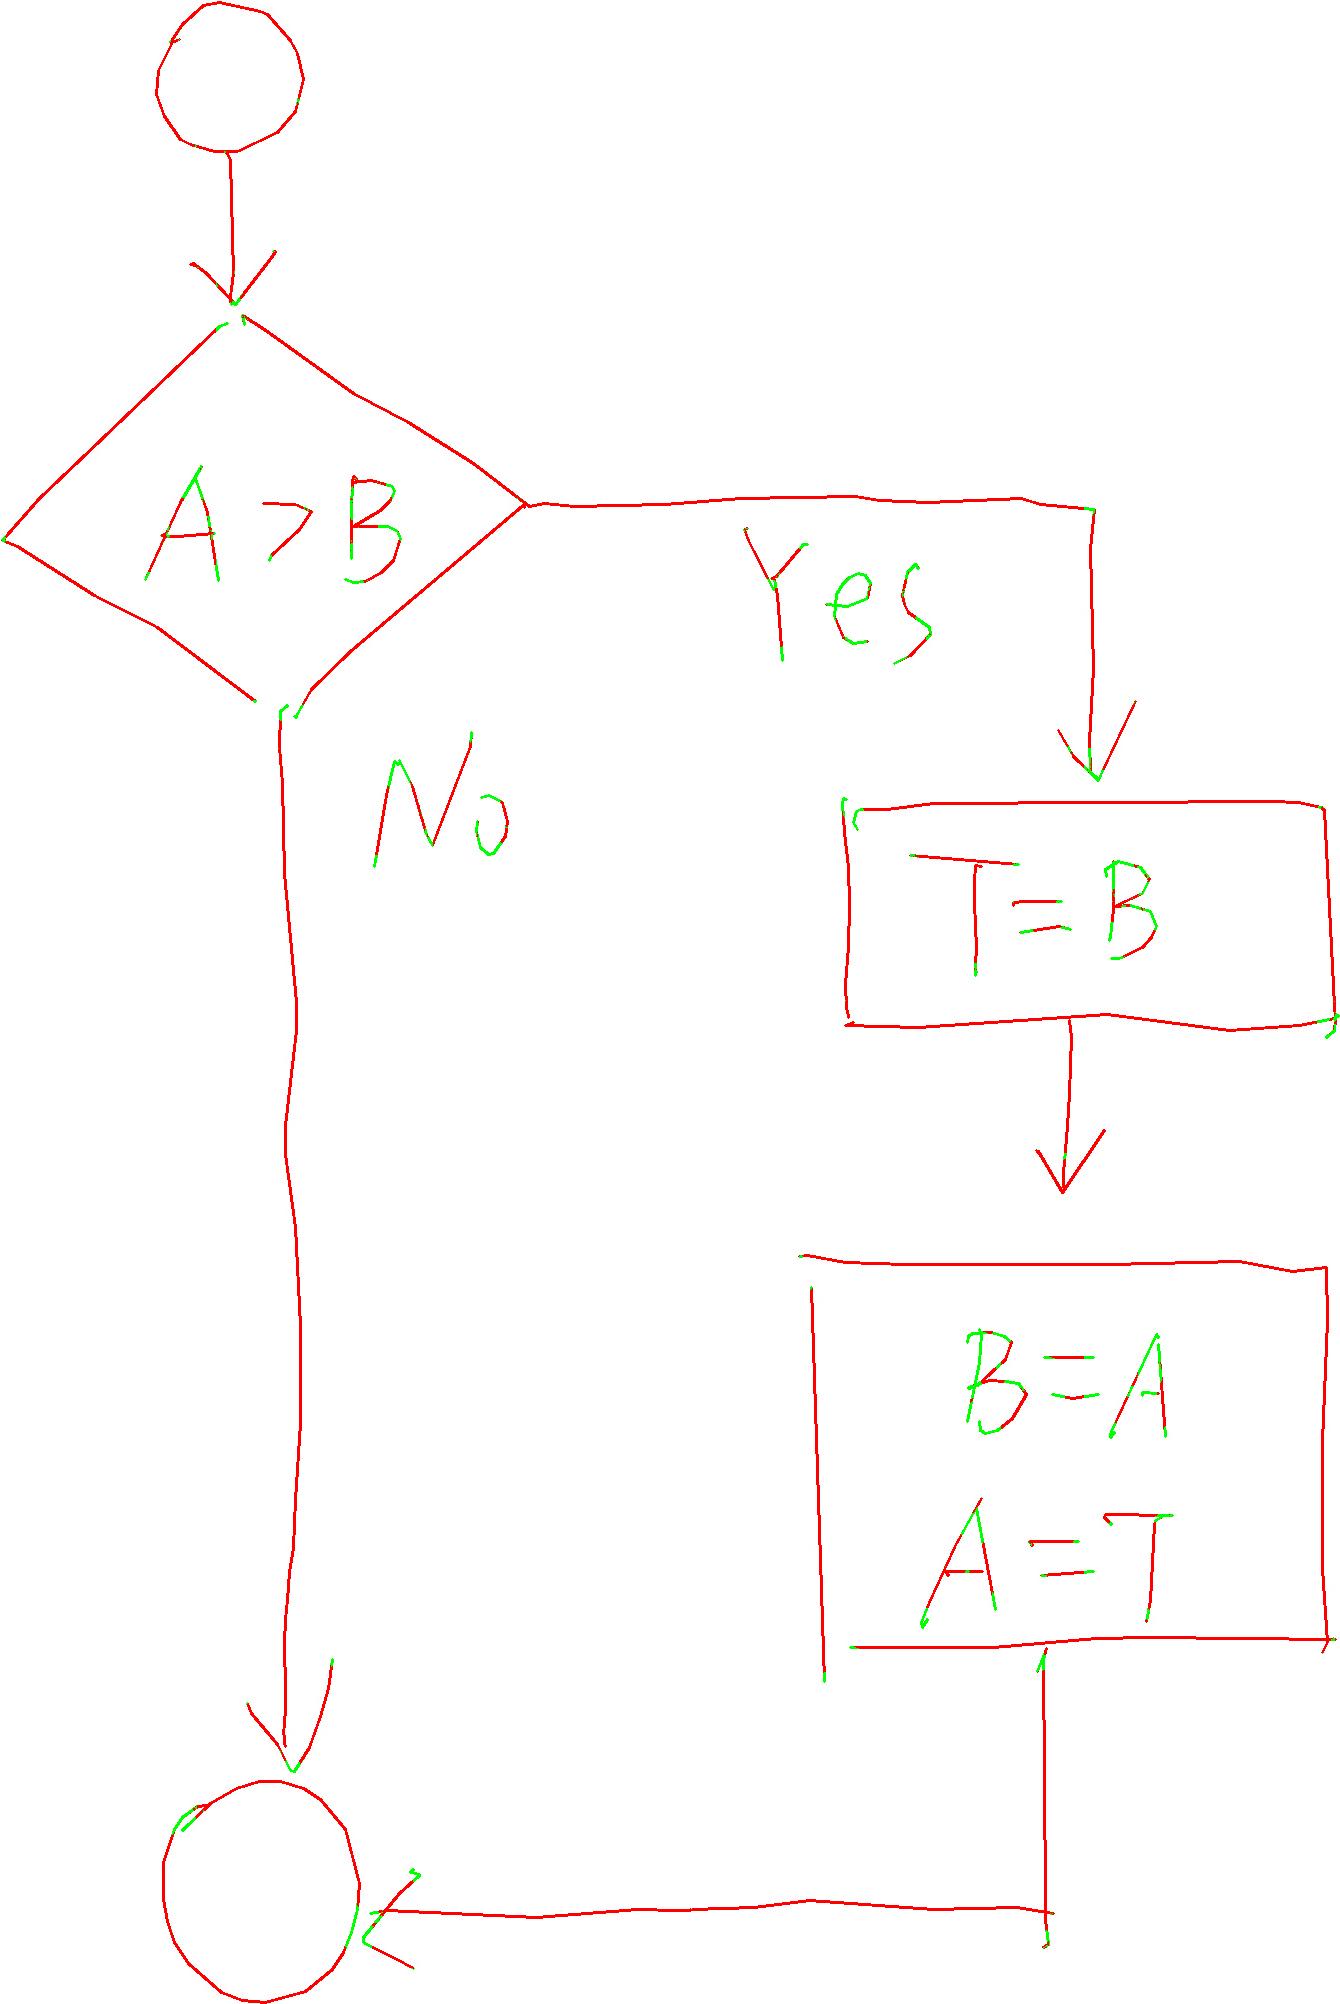 A > B
Yes
No
T = B
B = A
A = T